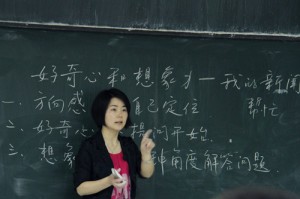 好奇心和想象力—我的新闻
帮忙
一. 方向感 自己定位
二. 好奇心 提问开始.
三. 想象 种角度解答问题.